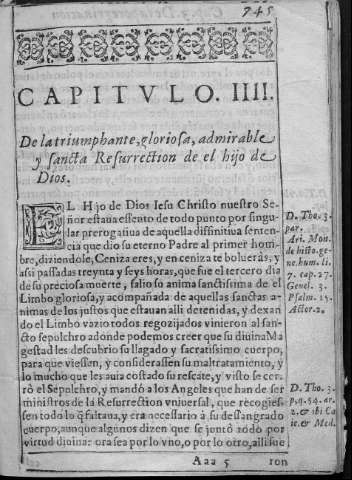 745
CAPITVLO. IIII.
De la triumphante, gloriosa, admirable
y sancta Resurrection de el hijo de
Dios.
EL Hijo de Dios Iesu Christo nuestro Se-
ñor estaua essento de todo punto por singu-
lar prerogatiua de aquella diffinitiua senten-
cia que dio su eterno Padre al primer hom-
bre, diziendole, Ceniza eres, y en ceniza te bolueràs; y
assi passadas treynta y seys horas, que fue el tercero dia
de su preciosa muerte, salio su anima sanctissima de el
Limbo gloriosa, y acompañada de aquellas sanctas a-
nimas de los justos que estauan alli detenidas, y dexan
do el Limbo vazio todos regozijados vinieron al san-
cto sepulchro adonde podemos creer que su diuina Ma
gestad les descubrio su llagado y sacratissimo cuerpo,
para que viessen, y considerassen su maltratamiento, y
lo mucho que les auia costado su rescate, y visto se cer-
rò el Sepulchro, y mandó a los Angeles que han de ser
ministros de la Resurrection vniuersal, que recogies-
sen todo lo q̃ faltaua, y era necessario à su desangrado
cuerpo, aunque algunos dizen que se juntò todo por
virtud diuina: ora sea por lo vno, o por lo otro, alli fue
Aaa 5 ron
D. Tho. 3.
par.
Ari. Mon.
de histo. ge-
ne. hum. li.
7. cap. 27.
Genes. 3.
Psalm. 15.
Actor. 2.
D. Tho. 3.
p. q. 54. ar.
2. & ibi Ca
ie. & Med.